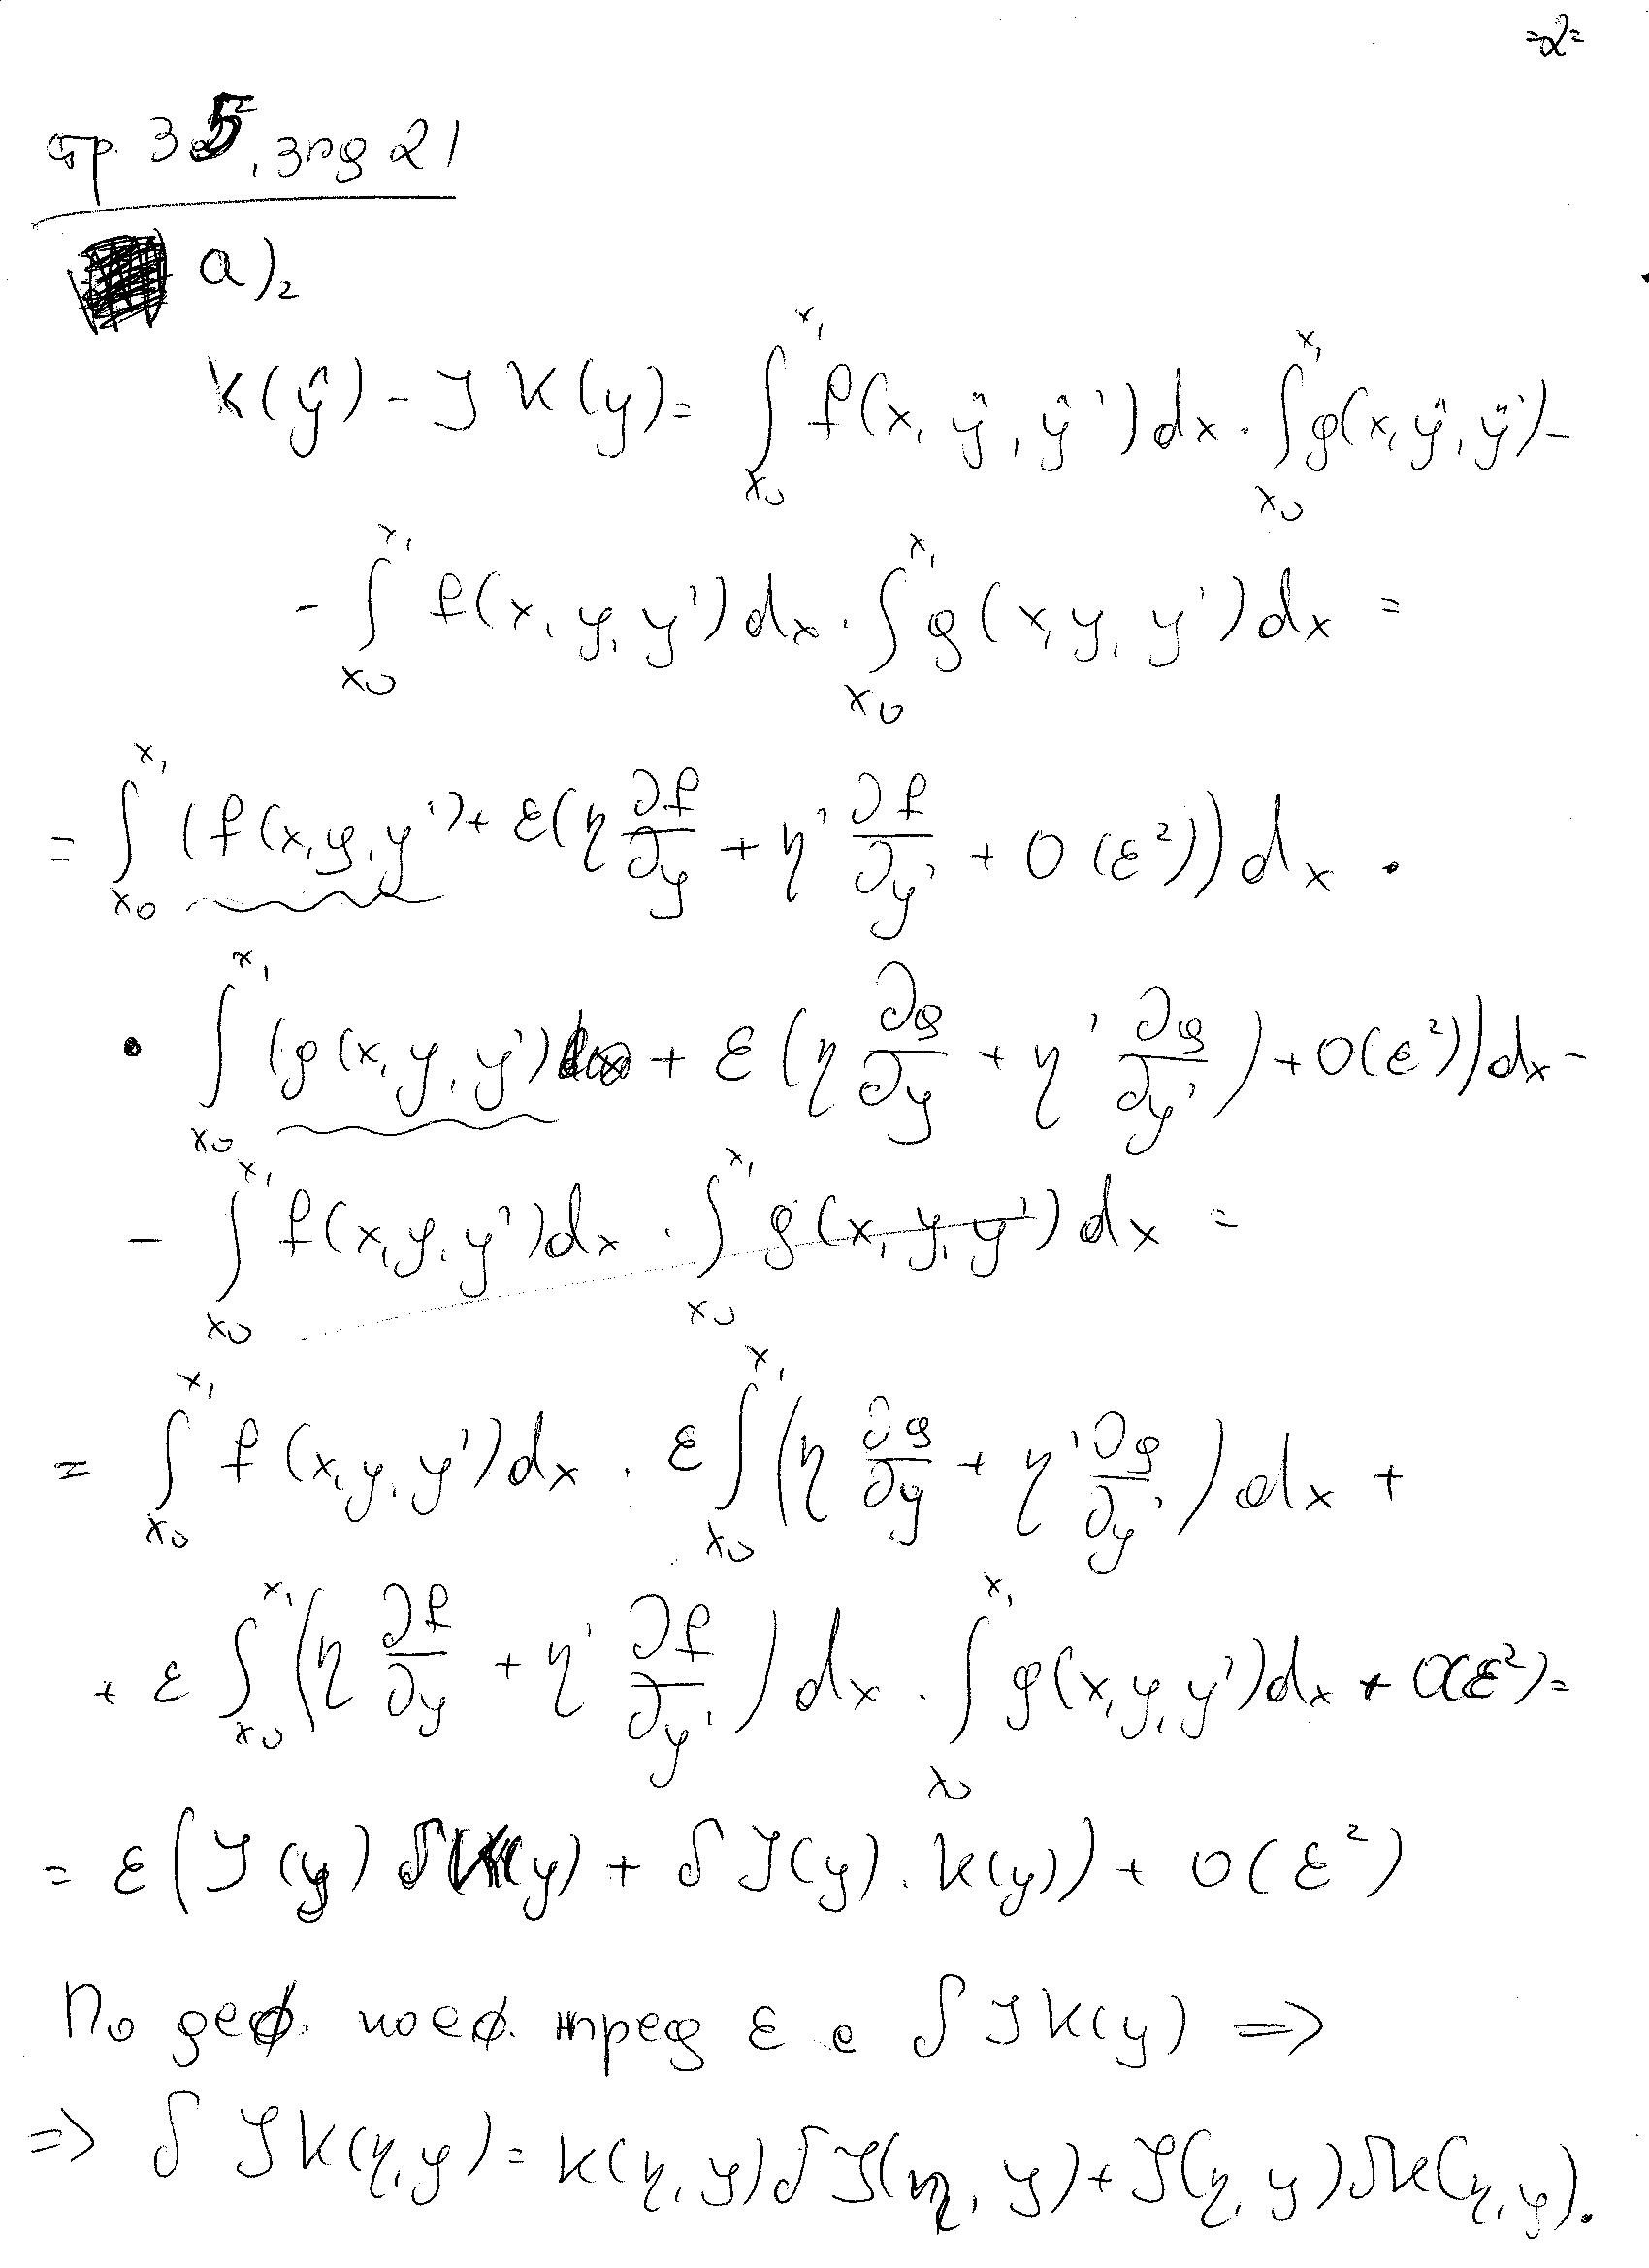 =2=
стр. 35, зад 21
а)₂
K(ŷ) - J K(y) = ∫_{x₀}^{x₁} f(x, ŷ, ŷ') dx · ∫_{x₀}^{x₁} g(x, ŷ, ŷ') -
- ∫_{x₀}^{x₁} f(x, y, y') dx · ∫_{x₀}^{x₁} g(x, y, y') dx =
= ∫_{x₀}^{x₁} (f(x, y, y') + ε(η ∂f/∂y + η' ∂f/∂y' + O(ε²)) dx ·
· ∫_{x₀}^{x₁} (g(x, y, y') + ε(η ∂g/∂y + η' ∂g/∂y') + O(ε²)) dx -
- ∫_{x₀}^{x₁} f(x, y, y') dx · ∫_{x₀}^{x₁} g(x, y, y') dx =
= ∫_{x₀}^{x₁} f(x, y, y') dx · ε ∫_{x₀}^{x₁} (η ∂g/∂y + η' ∂g/∂y') dx +
+ ε ∫_{x₀}^{x₁} (η ∂f/∂y + η' ∂f/∂y') dx · ∫_{x₀}^{x₁} g(x, y, y') dx + O(ε²) =
= ε(J(y) δK(y) + δJ(y) · K(y)) + O(ε²)
По деф. коеф. пред ε е δJK(y) =>
=> δJK(η, y) = K(η, y) δJ(η, y) + J(η, y) δK(η, y).